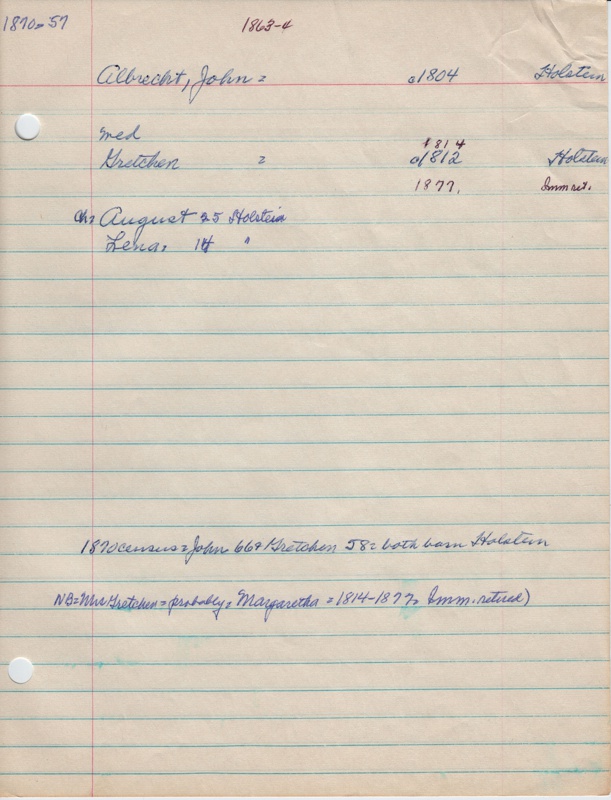 1870=57 1863-4
Albrecht, John = c1804 Holstein
med
1814
Gretchen = c1812 Holstein
1877. Imm ret.
Ch: August 25 Holstein
Lena, 14 "
1870 census = John 66 & Gretchen 58 = both born Holstein
NB = Mrs Gretchen = (probably = Margaretha = 1814-1877 = Imm. retired)